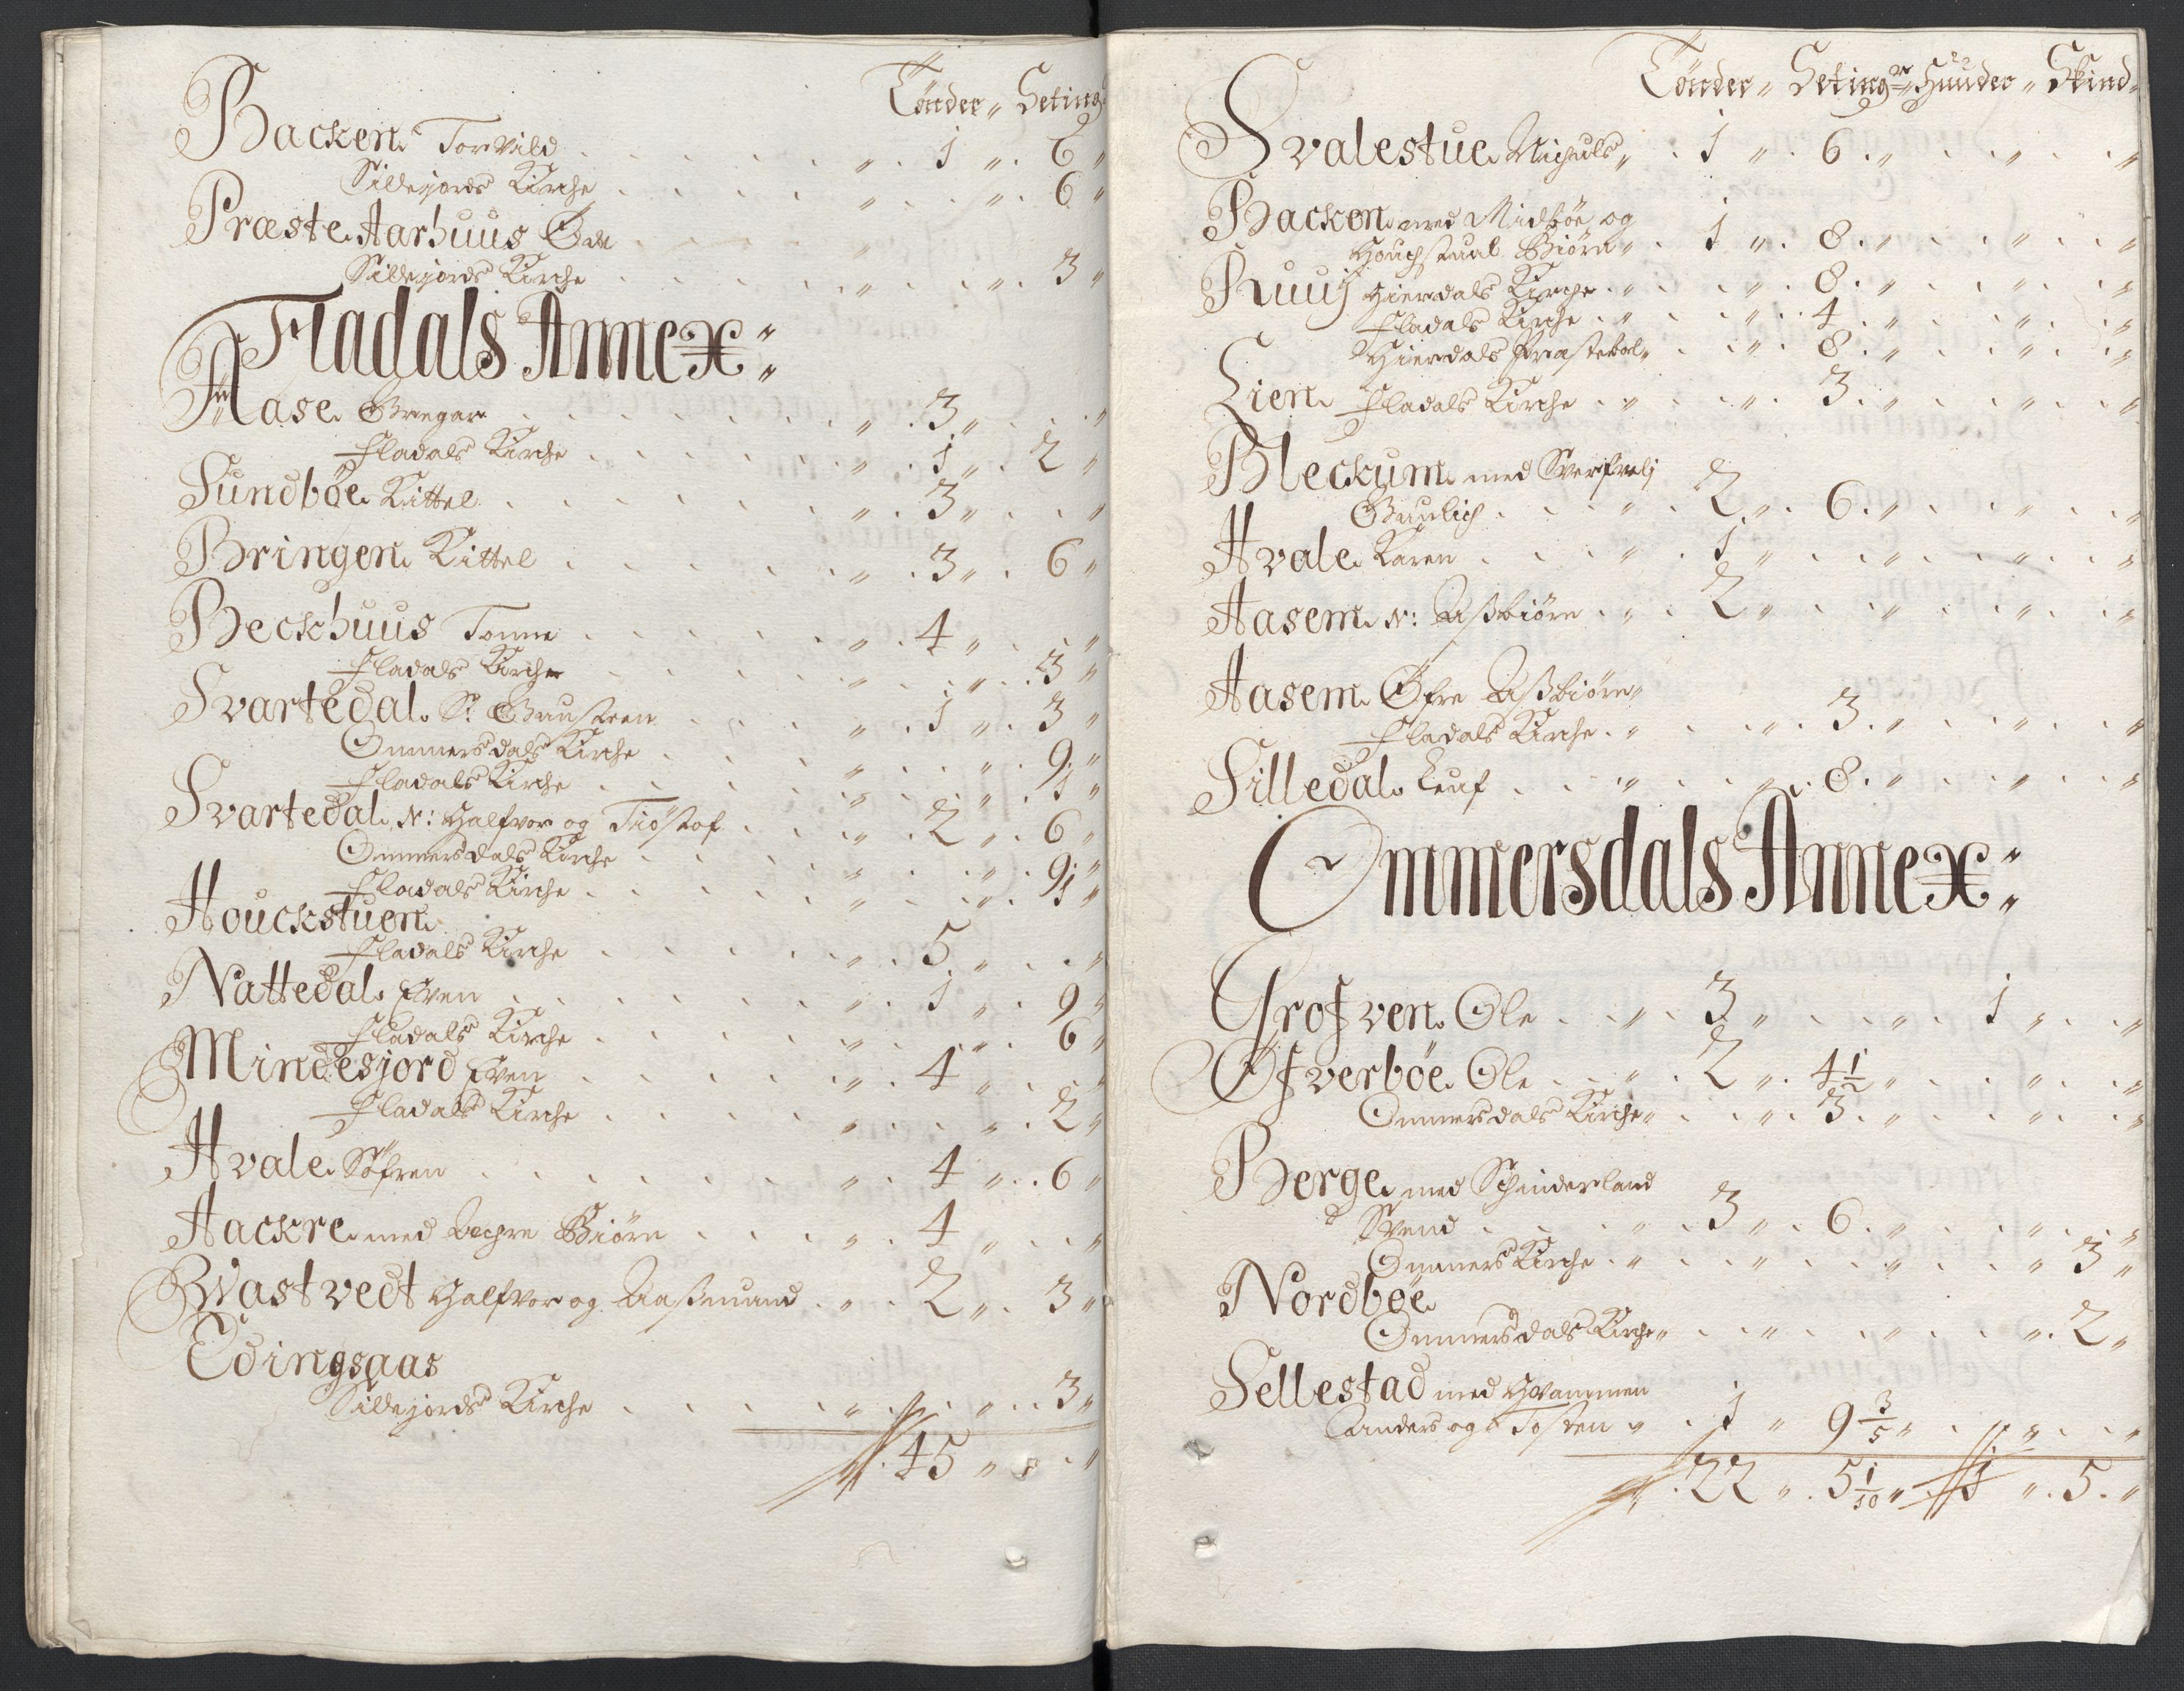 Tönder „ Seting
Backen Torvild „ 1 „ 6 „
Sillejords Kirche „ „ 6 „
Præste Aarhuus Öde „
Sillejords Kirche „ „ 3 „
Fladals Annex:
Aase Gregar „ 3 „ „
Fladals Kirche „ 1 „ 2 „
Sundböe Kittel „ 3 „ „
Bringen Kittel „ 3 „ 6 „
Beckhuus Tonne „ 4 „ „
Fladals Kirche „ „ 3 „
Svartedal S: Gunsteen „ 1 „ 3 „
Ommersdals Kirche „ „ 9 „
Fladals Kirche „ „ 1 „
Svartedal N: Halfvor og Tiöstof „ 2 „ 6 „
Ommersdals Kirche „ „ 9 „
Fladals Kirche „ „ 1 „
Houckstuen
Fladals Kirche „ 5 „ „
Nattedal Even „ 1 „ 9 „
Fladals Kirche „ „ 6 „
Mindesjord Even „ 4 „ „
Fladals Kirche „ „ 2 „
Hvale Söfren „ 4 „ 6 „
Hackre med Biörn „ 4 „ „
Qvastvedt Halfvor og Aaßmund „ 2 „ 3 „
Edingsaas
Sillejords Kirche „ „ 3 „
„ 45 „ 8 „
Tönder „ Seting:r „ Huuder „ Skind „
Svalestue Nichuls „ 1 „ 6 „ „ „
Backen med Midböe og
Houchstual Biörn „ 1 „ 8 „ „ „
Ruuj Hierdals Kirche „ „ 8 „ „ „
Fladals Kirche „ „ 4 „ „ „
Hierdals Præstebol „ „ 8 „ „ „
Lien Fladals Kirche „ „ 3 „ „ „
Bleckum med
Gunlich „ 2 „ 6 „ „ „
Hvale Karen „ 1 „ „ „ „
Aasem N: Aßbiörn „ 2 „ „ „ „
Aasem Öfre Aßbiörn „
Fladals Kirche „ „ 3 „ „ „
Silledal Leuf „ „ 8 „ „ „
Ommersdals Annex:
Grofven Ole „ 3 „ „ 1 „ „
Ofverböe Ole „ 2 „ 4 1/2 „ „ „
Ommersdals Kirche „ „ 3 „ „ „
Berge med Schinderland
Svend „ 3 „ 6 „ „ „
Ommers Kirche „ „ „ „ 3 „
Nordböe
Ommersdals Kirche „ „ „ „ 2 „
Sellestad med Hvammen
Anders og Tosten „ 1 „ 9 3/5 „ „ „
„ 22 „ 5 1/10 „ 1 „ 5 „